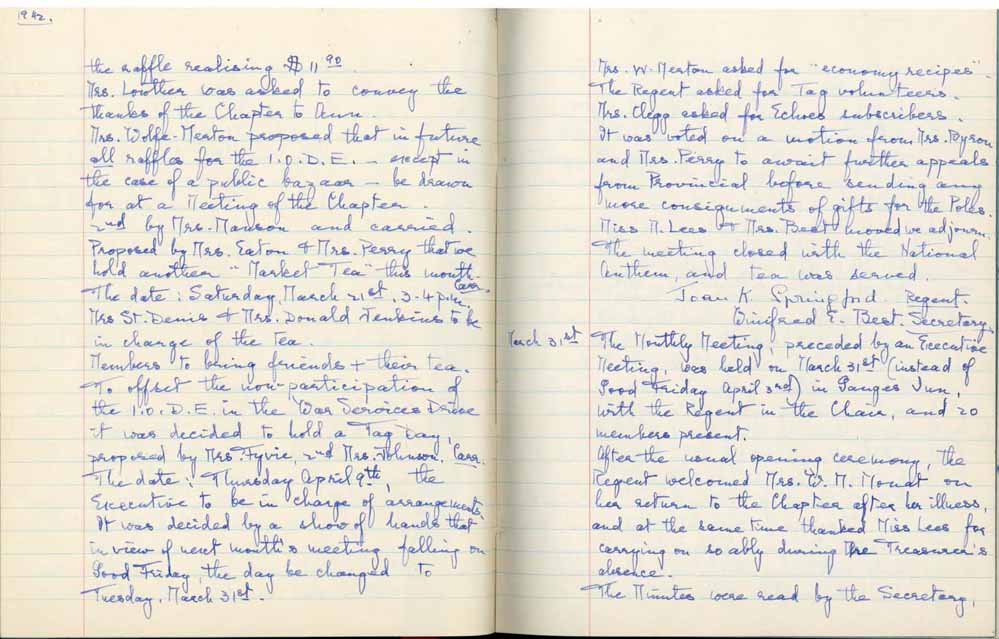 1942.
the raffle realising $11 90.
Mrs. Lowther was asked to convey the
thanks of the Chapter to
Mrs. Wolfe-Merton proposed that in future
all raffles for the I.O.D.E. – except in
the case of a public bazaar – be drawn
for at a Meeting of the Chapter.
2nd by Mrs. Manson and carried.
Proposed by Mrs. Eaton & Mrs. Perry that we
hold another "Market Tea" this month.
Carr.
The date: Saturday, March 21st, 3-4 p.m.
Mrs St. Denis & Mrs. Donald Jenkins to be
in charge of the Tea.
Members to bring friends + their tea.
To offset the non-participation of
the I.O.D.E. in the War Services Drive
it was decided to hold a Tag Day,
proposed by Mrs. Fyvie, 2nd Mrs. Johnson. Carr.
The date: Thursday April 9th, the
Executive to be in charge of arrangements.
It was decided by a show of hands that
in view of next month's meeting falling on
Good Friday, the day be changed to
Tuesday. March 31st.
Mrs. W. Merton asked for "economy recipes".
The Regent asked for Tag volunteers.
Mrs. Clegg asked for Echoes subscribers.
It was voted on a motion from Mrs. Byron
and Mrs. Perry to await further appeals
from Provincial before sending any
more consignments of gifts for the Poles.
Miss M. Lees & Mrs. Best moved we adjourn.
The meeting closed with the National
Anthem, and tea was served.
Joan K. Springford. Regent.
Winifred E. Best. Secretary.
March 31st The Monthly Meeting, preceded by an Executive
Meeting, was held on March 31st (instead of
Good Friday April 3rd) in Ganges Inn,
with the Regent in the Chair, and 20
members present.
After the usual opening ceremony, the
Regent welcomed Mrs. W. M. Mouat on
her return to the Chapter after her illness,
and at the same time thanked Miss Lees for
carrying on so ably during the Treasurer's
absence.
The Minutes were read by the Secretary,